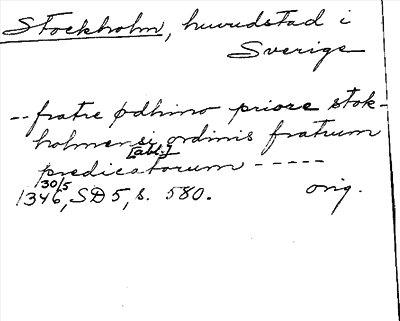 Stockholm, huvudstad i
Sverige
-- fratre Ødhino priore stok-
holmensi ordinis fratrum
[abl.]
predicatorum -----
30/5
1346, SD 5, s. 580. orig.